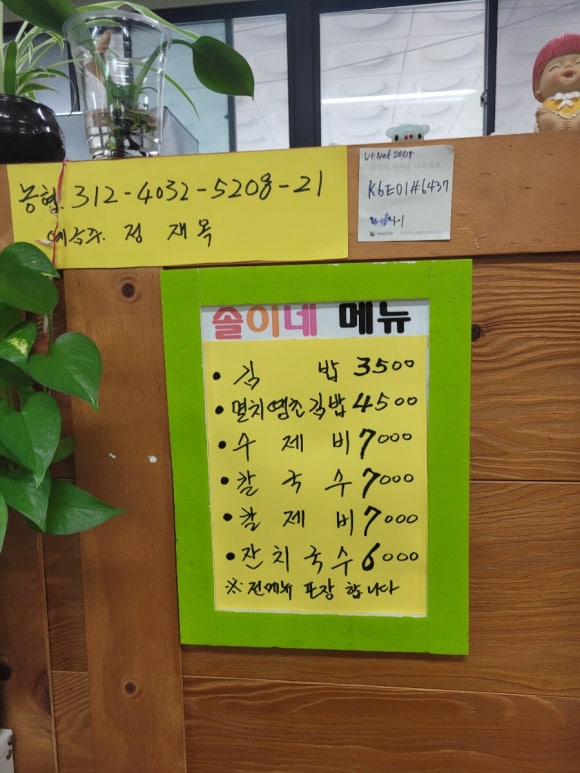 농협 312-4032-5208-21
예금주. 정 재 목
K6E01#6437
솔이네 메뉴
• 김 밥 3500
• 멸치땡초김밥 4500
• 수 제 비 7000
• 칼 국 수 7000
• 칼 제 비 7000
• 잔 치 국 수 6000
※ 전메뉴 포장 합니다